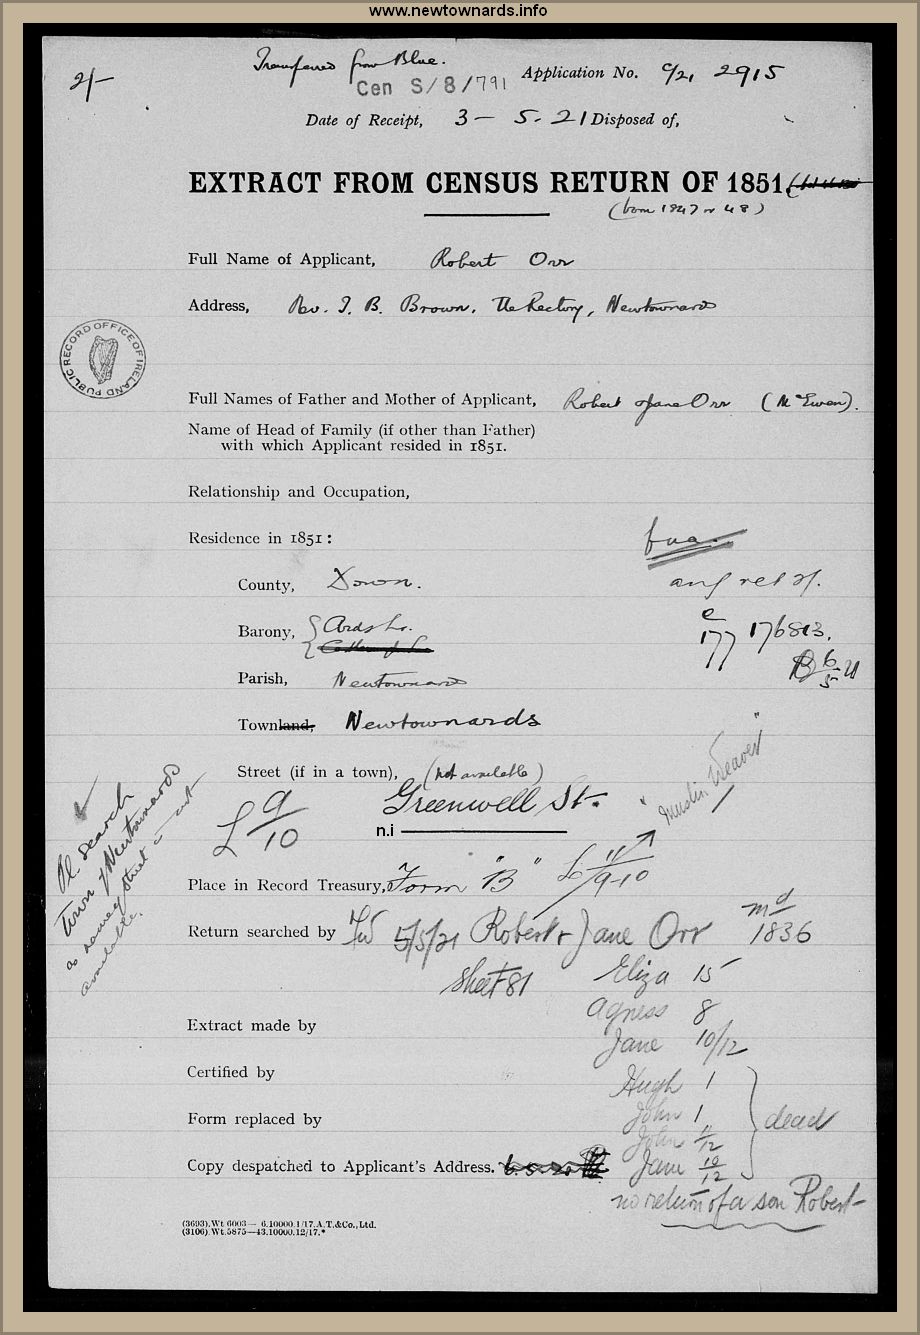 www.newtownards.info
2/-
Transferred from Blue.
Cen S/8/791
Application No. C/21 2915
Date of Receipt, 3 - 5. 21 Disposed of,
EXTRACT FROM CENSUS RETURN OF 1851.
(born 1847 or 48)
Full Name of Applicant, Robert Orr
Address, Rev. J. B. Brown, The Rectory, Newtownards
PUBLIC RECORD OFFICE OF IRELAND
Full Names of Father and Mother of Applicant, Robert & Jane Orr (McEwen).
Name of Head of Family (if other than Father)
with which Applicant resided in 1851.
Relationship and Occupation,
Residence in 1851:
County, Down.
Barony, Ards Lr.
177 176813.
6/5 21
Parish, Newtownards
Townland, Newtownards
Street (if in a town), (not available)
Greenwell St.
"Muslin Weaver"
£ 9/10
n.i
Pl. search
Town of Newtownards
as name of street is not
available.
Place in Record Treasury, Form "B" 11/9-10
Return searched by 5/5/21 Robert & Jane Orr md 1836
Sheet 81 Eliza 15
Agness 8
Extract made by
Jane 10/12
Certified by
Hugh 1
Form replaced by John 1 dead
John 11/12
Copy despatched to Applicant's Address. Jane 10/12
no return of a son Robert
(3693).Wt 6003— 6.10000.1/17.A.T.&Co.,Ltd.
(3106).Wt.5875—43.10000.12/17.*